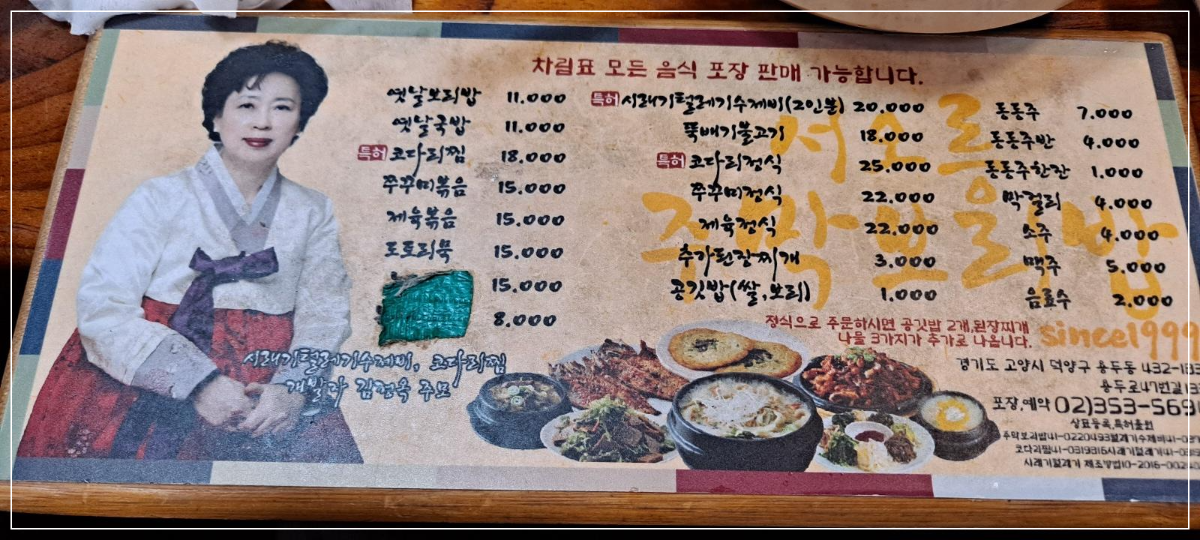 차림표 모든 음식 포장 판매 가능합니다.
옛날보리밥 11.000
옛날국밥 11.000
특허 코다리찜 18.000
쭈꾸미볶음 15.000
제육볶음 15.000
도토리묵 15.000
15.000
8.000
특허 시래기털레기수제비(2인분) 20.000
뚝배기불고기 18.000
특허 코다리정식 25.000
쭈꾸미정식 22.000
제육정식 22.000
추가된장찌개 3.000
공깃밥(쌀,보리) 1.000
동동주 7.000
동동주반 4.000
동동주한잔 1.000
막걸리 4.000
소주 4.000
맥주 5.000
음료수 2.000
서오릉
주막보리밥
since1999
정식으로 주문하시면 공깃밥 2개,된장찌개
나물 3가지가 추가로 나옵니다.
시래기털레기수제비, 코다리찜
개발자 김정옥 주모
경기도 고양시 덕양구 용두동 432-183
용두로47번길
포장,예약 02)353-569
상표등록,특허출원
주막보리밥41-0220493털레기수제비41-
코다리찜41-0319316시래기털레기41-
시래기털레기 제조방법10-2016-